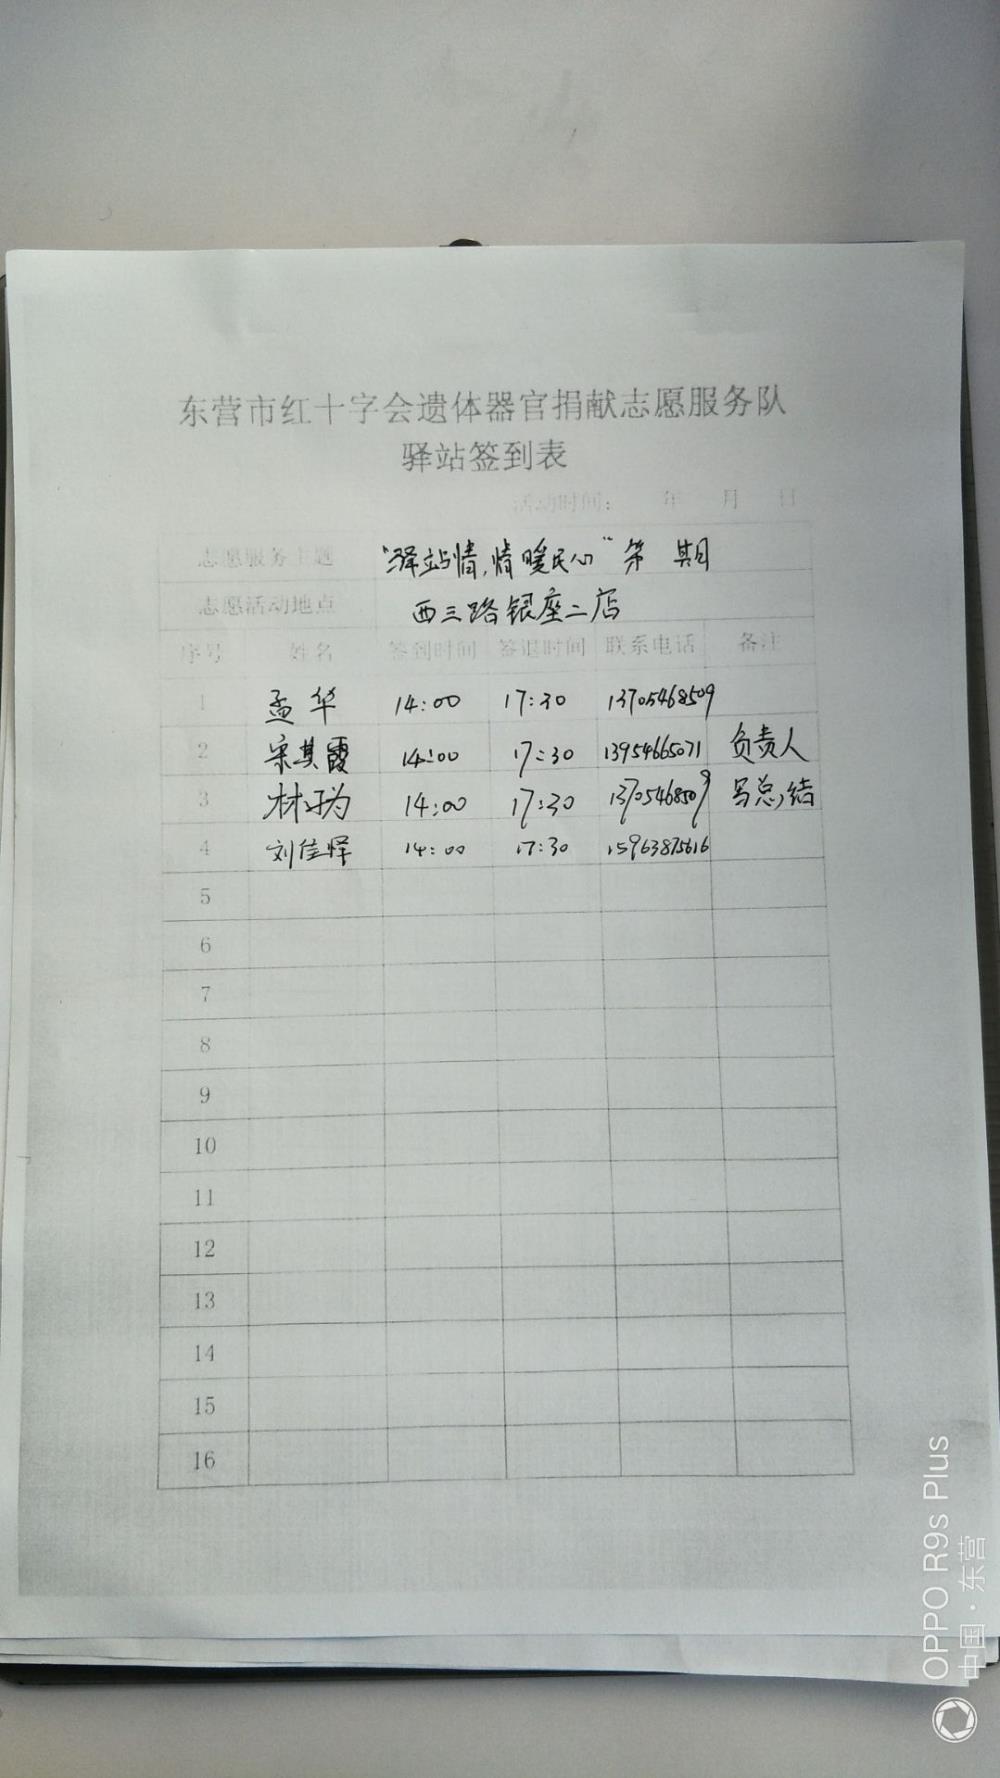 东营市红十字会遗体器官捐献志愿服务队
驿站签到表
活动时间： 年 月 日
志愿服务主题 “驿站情，情暖民心”第 期
志愿活动地点 西三路银座二店
序号 姓名 签到时间 签退时间 联系电话 备注
1 孟华 14:00 17:30 13705468509
2 宋其霞 14:00 17:30 13954665071 负责人
3 林 14:00 17:30 13705468509 写总结
4 刘佳怿 14:00 17:30 15963875616
5
6
7
8
9
10
11
12
13
14
15
16
OPPO R9s Plus
中国·东营